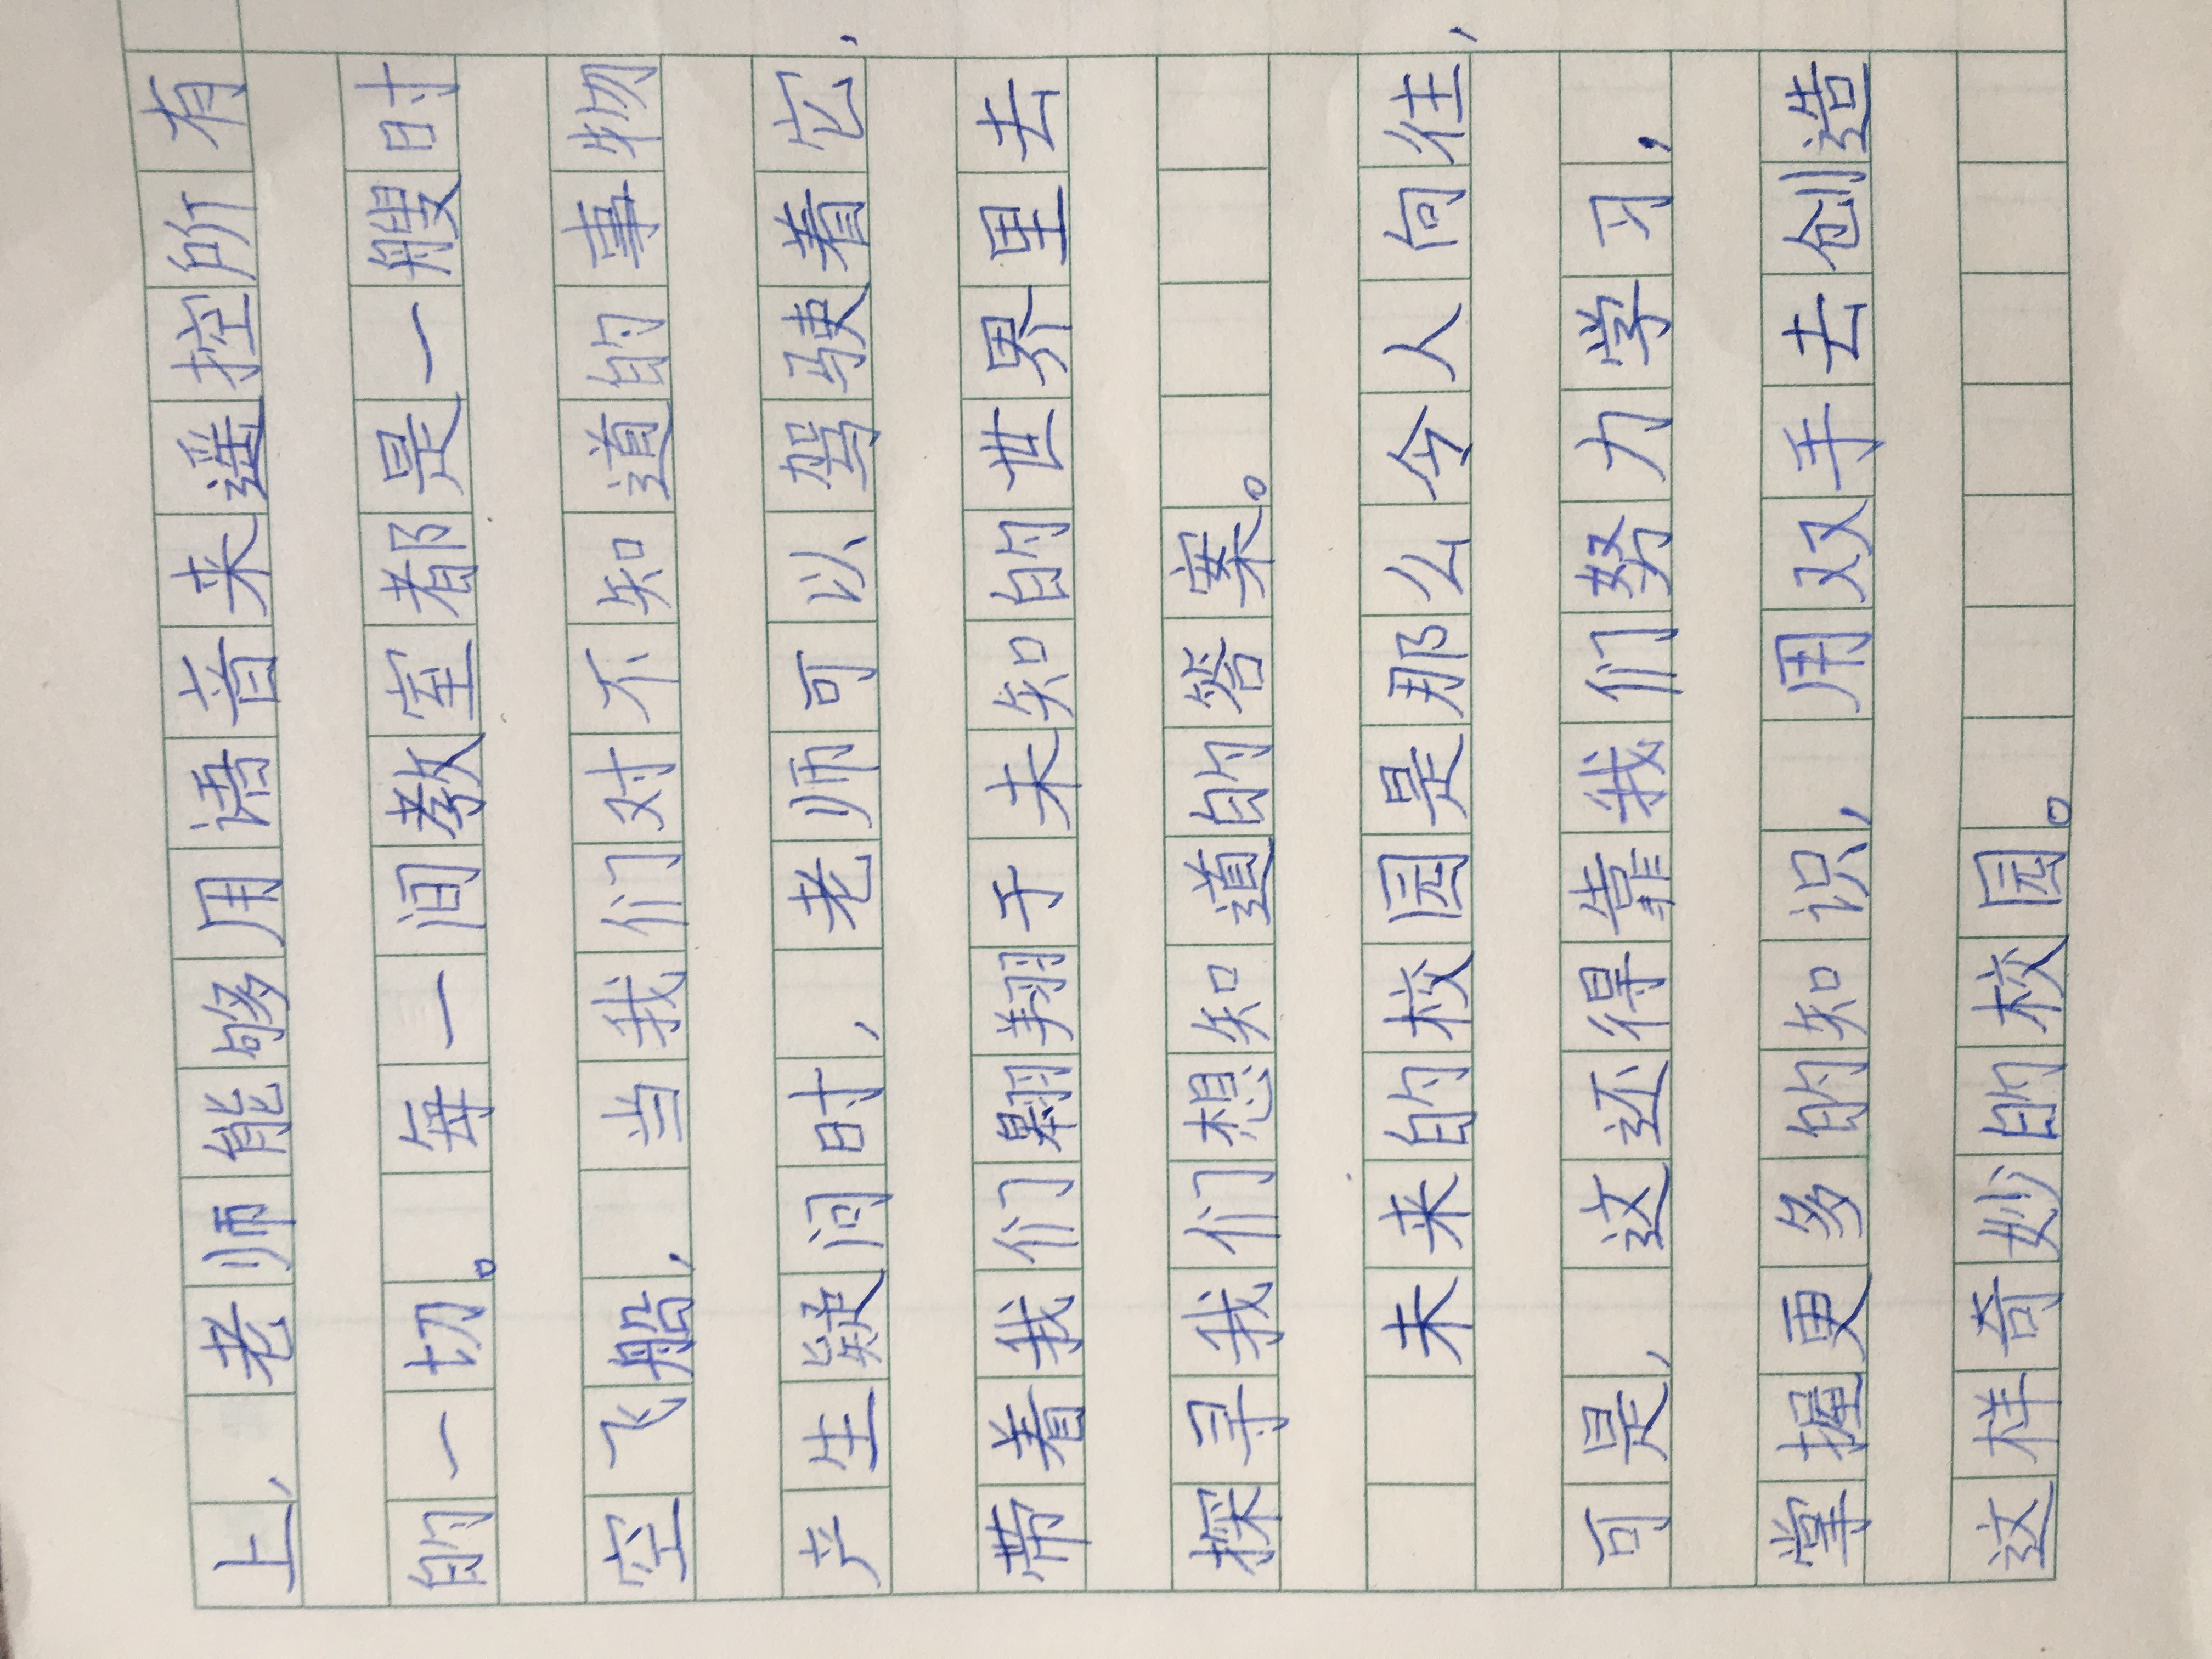 上，老师能够用语音来遥控所有
的一切。每一间教室都是一艘时
空飞船，当我们对不知道的事物
产生疑问时，老师可以驾驶着它，
带着我们翱翔于未知的世界里去
探寻我们想知道的答案。
未来的校园是那么令人向往，
可是，这还得靠我们努力学习，
掌握更多的知识，用双手去创造
这样奇妙的校园。